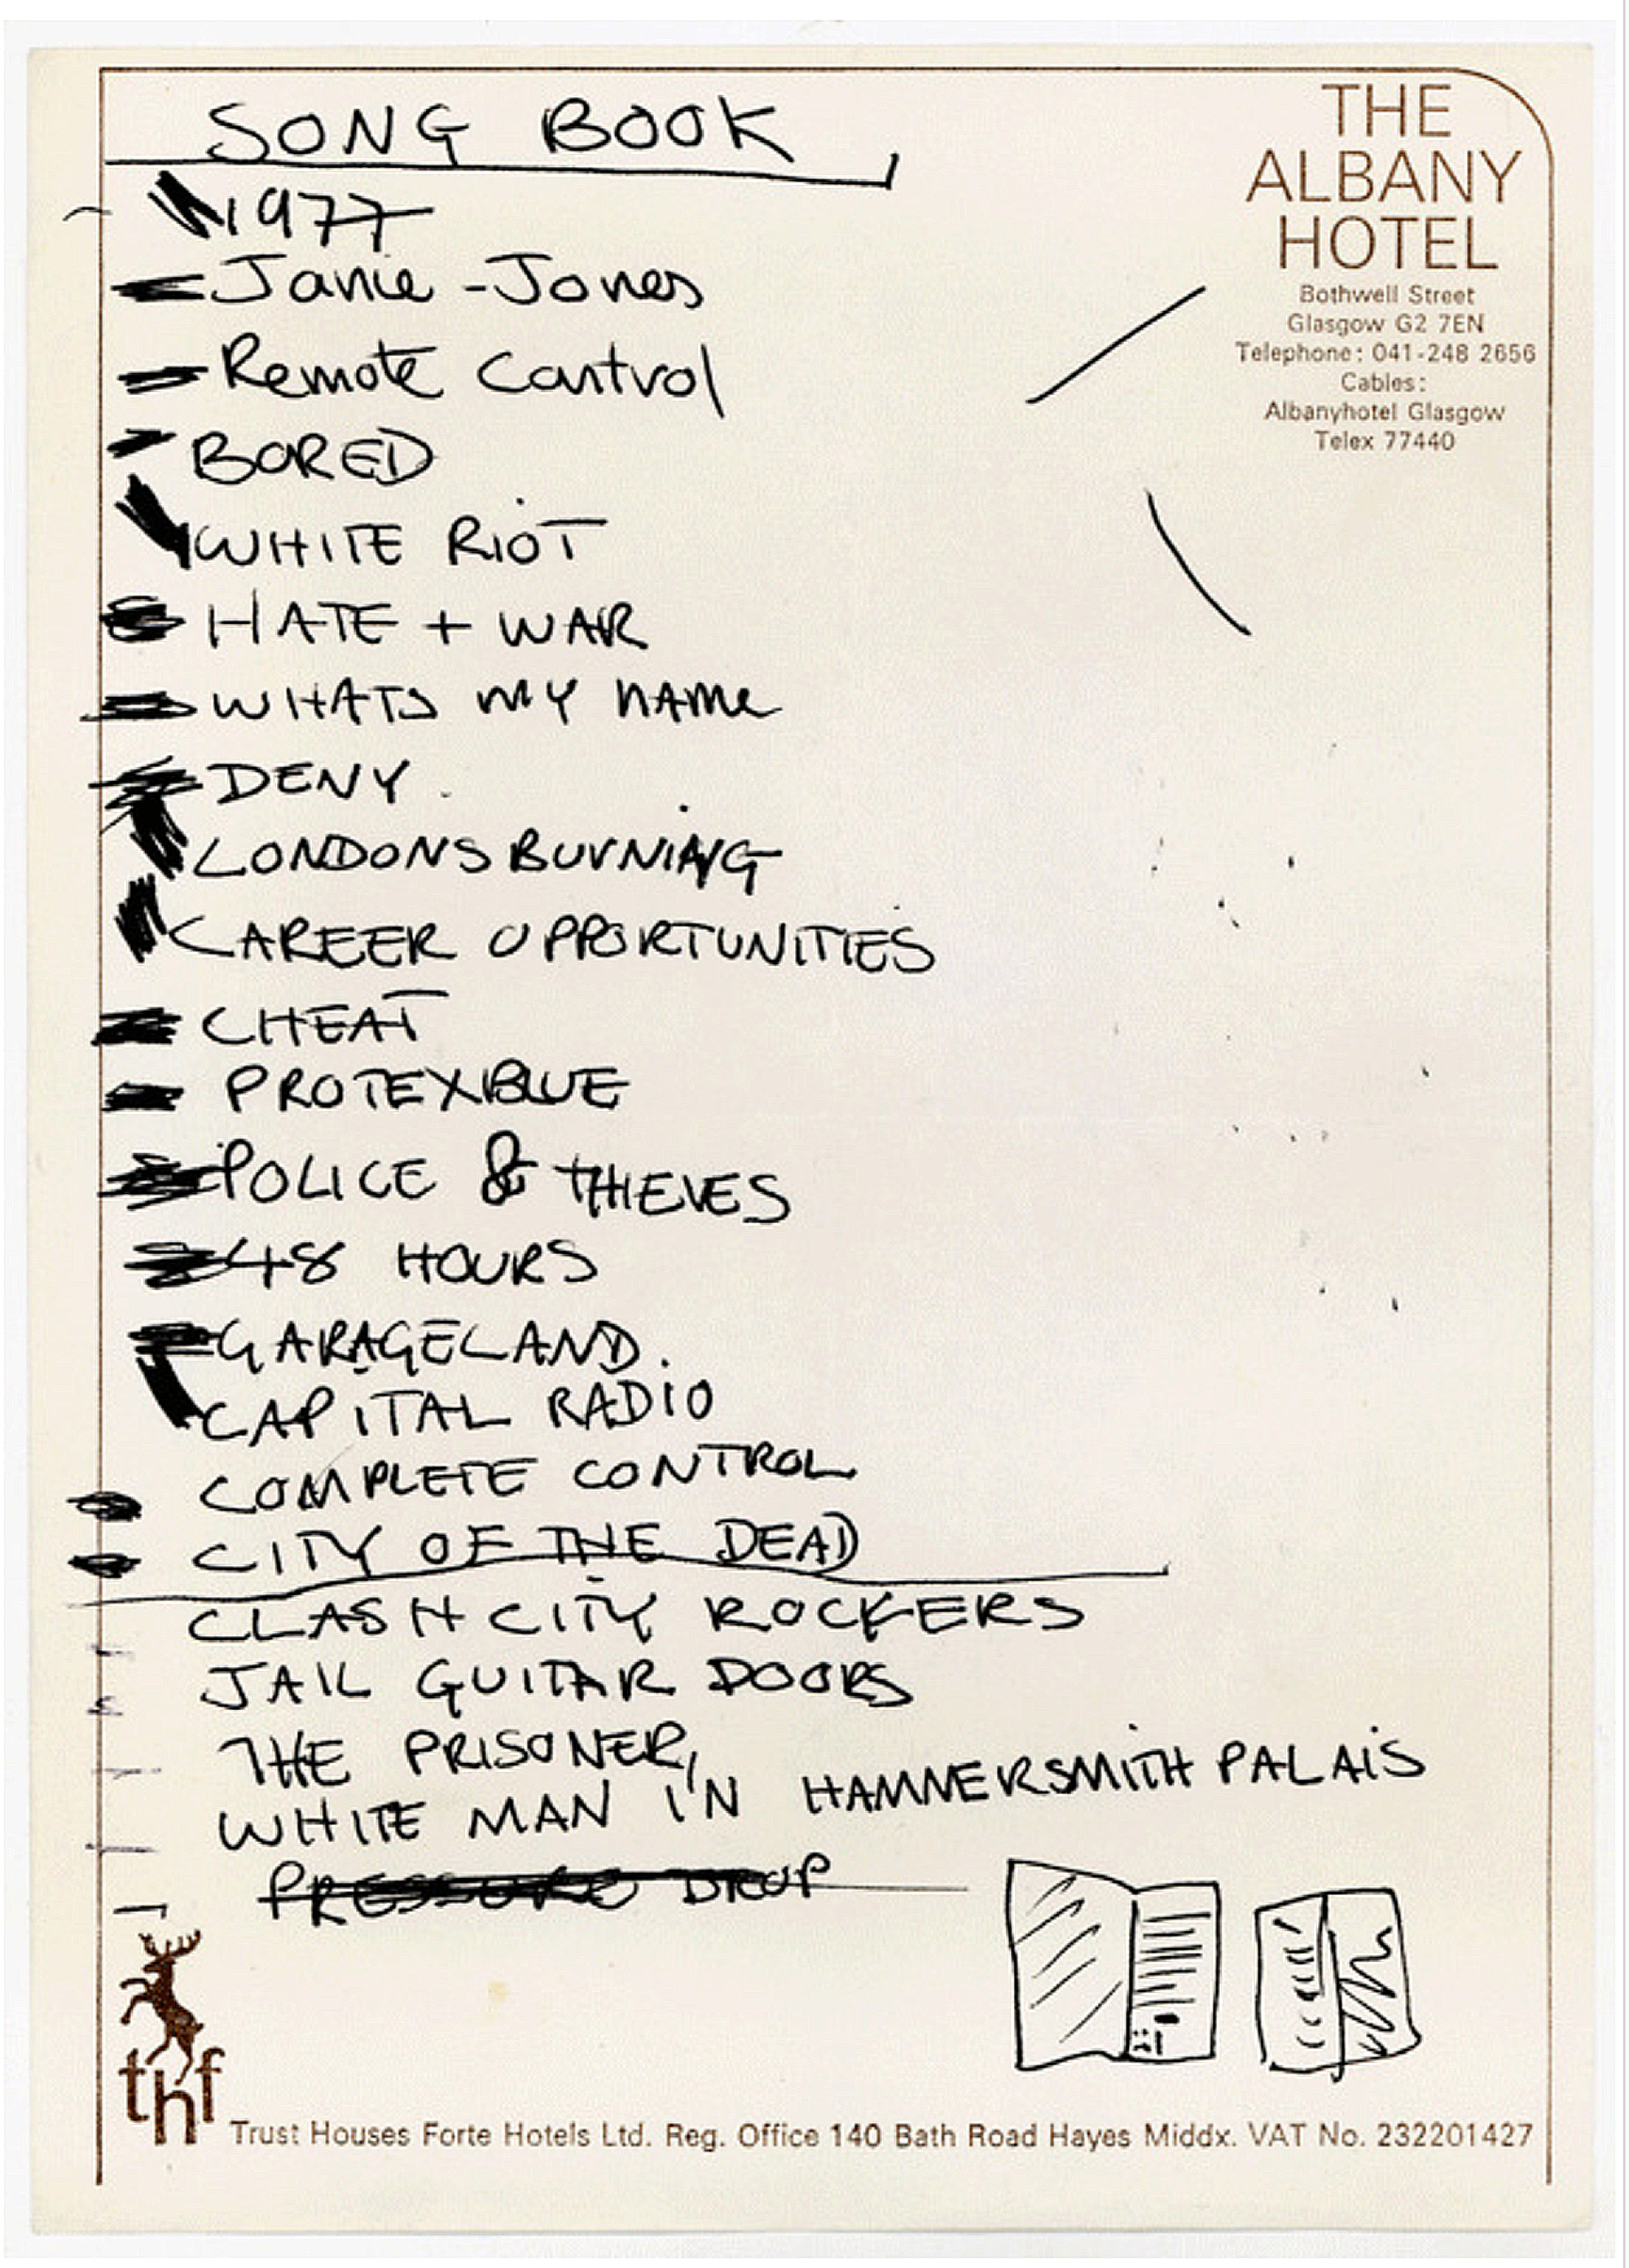 SONG BOOK
THE
ALBANY
HOTEL
Bothwell Street
Glasgow G2 7EN
Telephone: 041-248 2656
Cables:
Albanyhotel Glasgow
Telex 77440
1977
Janie-Jones
Remote Control
BORED
WHITE RIOT
HATE + WAR
WHATS MY NAME
DENY.
LONDONS BURNING
CAREER OPPORTUNITIES
CHEAT
PROTEXBLUE
POLICE & THIEVES
48 HOURS
GARAGELAND.
CAPITAL RADIO
COMPLETE CONTROL
CITY OF THE DEAD
CLASH CITY ROCKERS
JAIL GUITAR DOORS
THE PRISONER,
WHITE MAN IN HAMNERSMITH PALAIS
PRESSURE DROP
thf
Trust Houses Forte Hotels Ltd. Reg. Office 140 Bath Road Hayes Middx. VAT No. 232201427